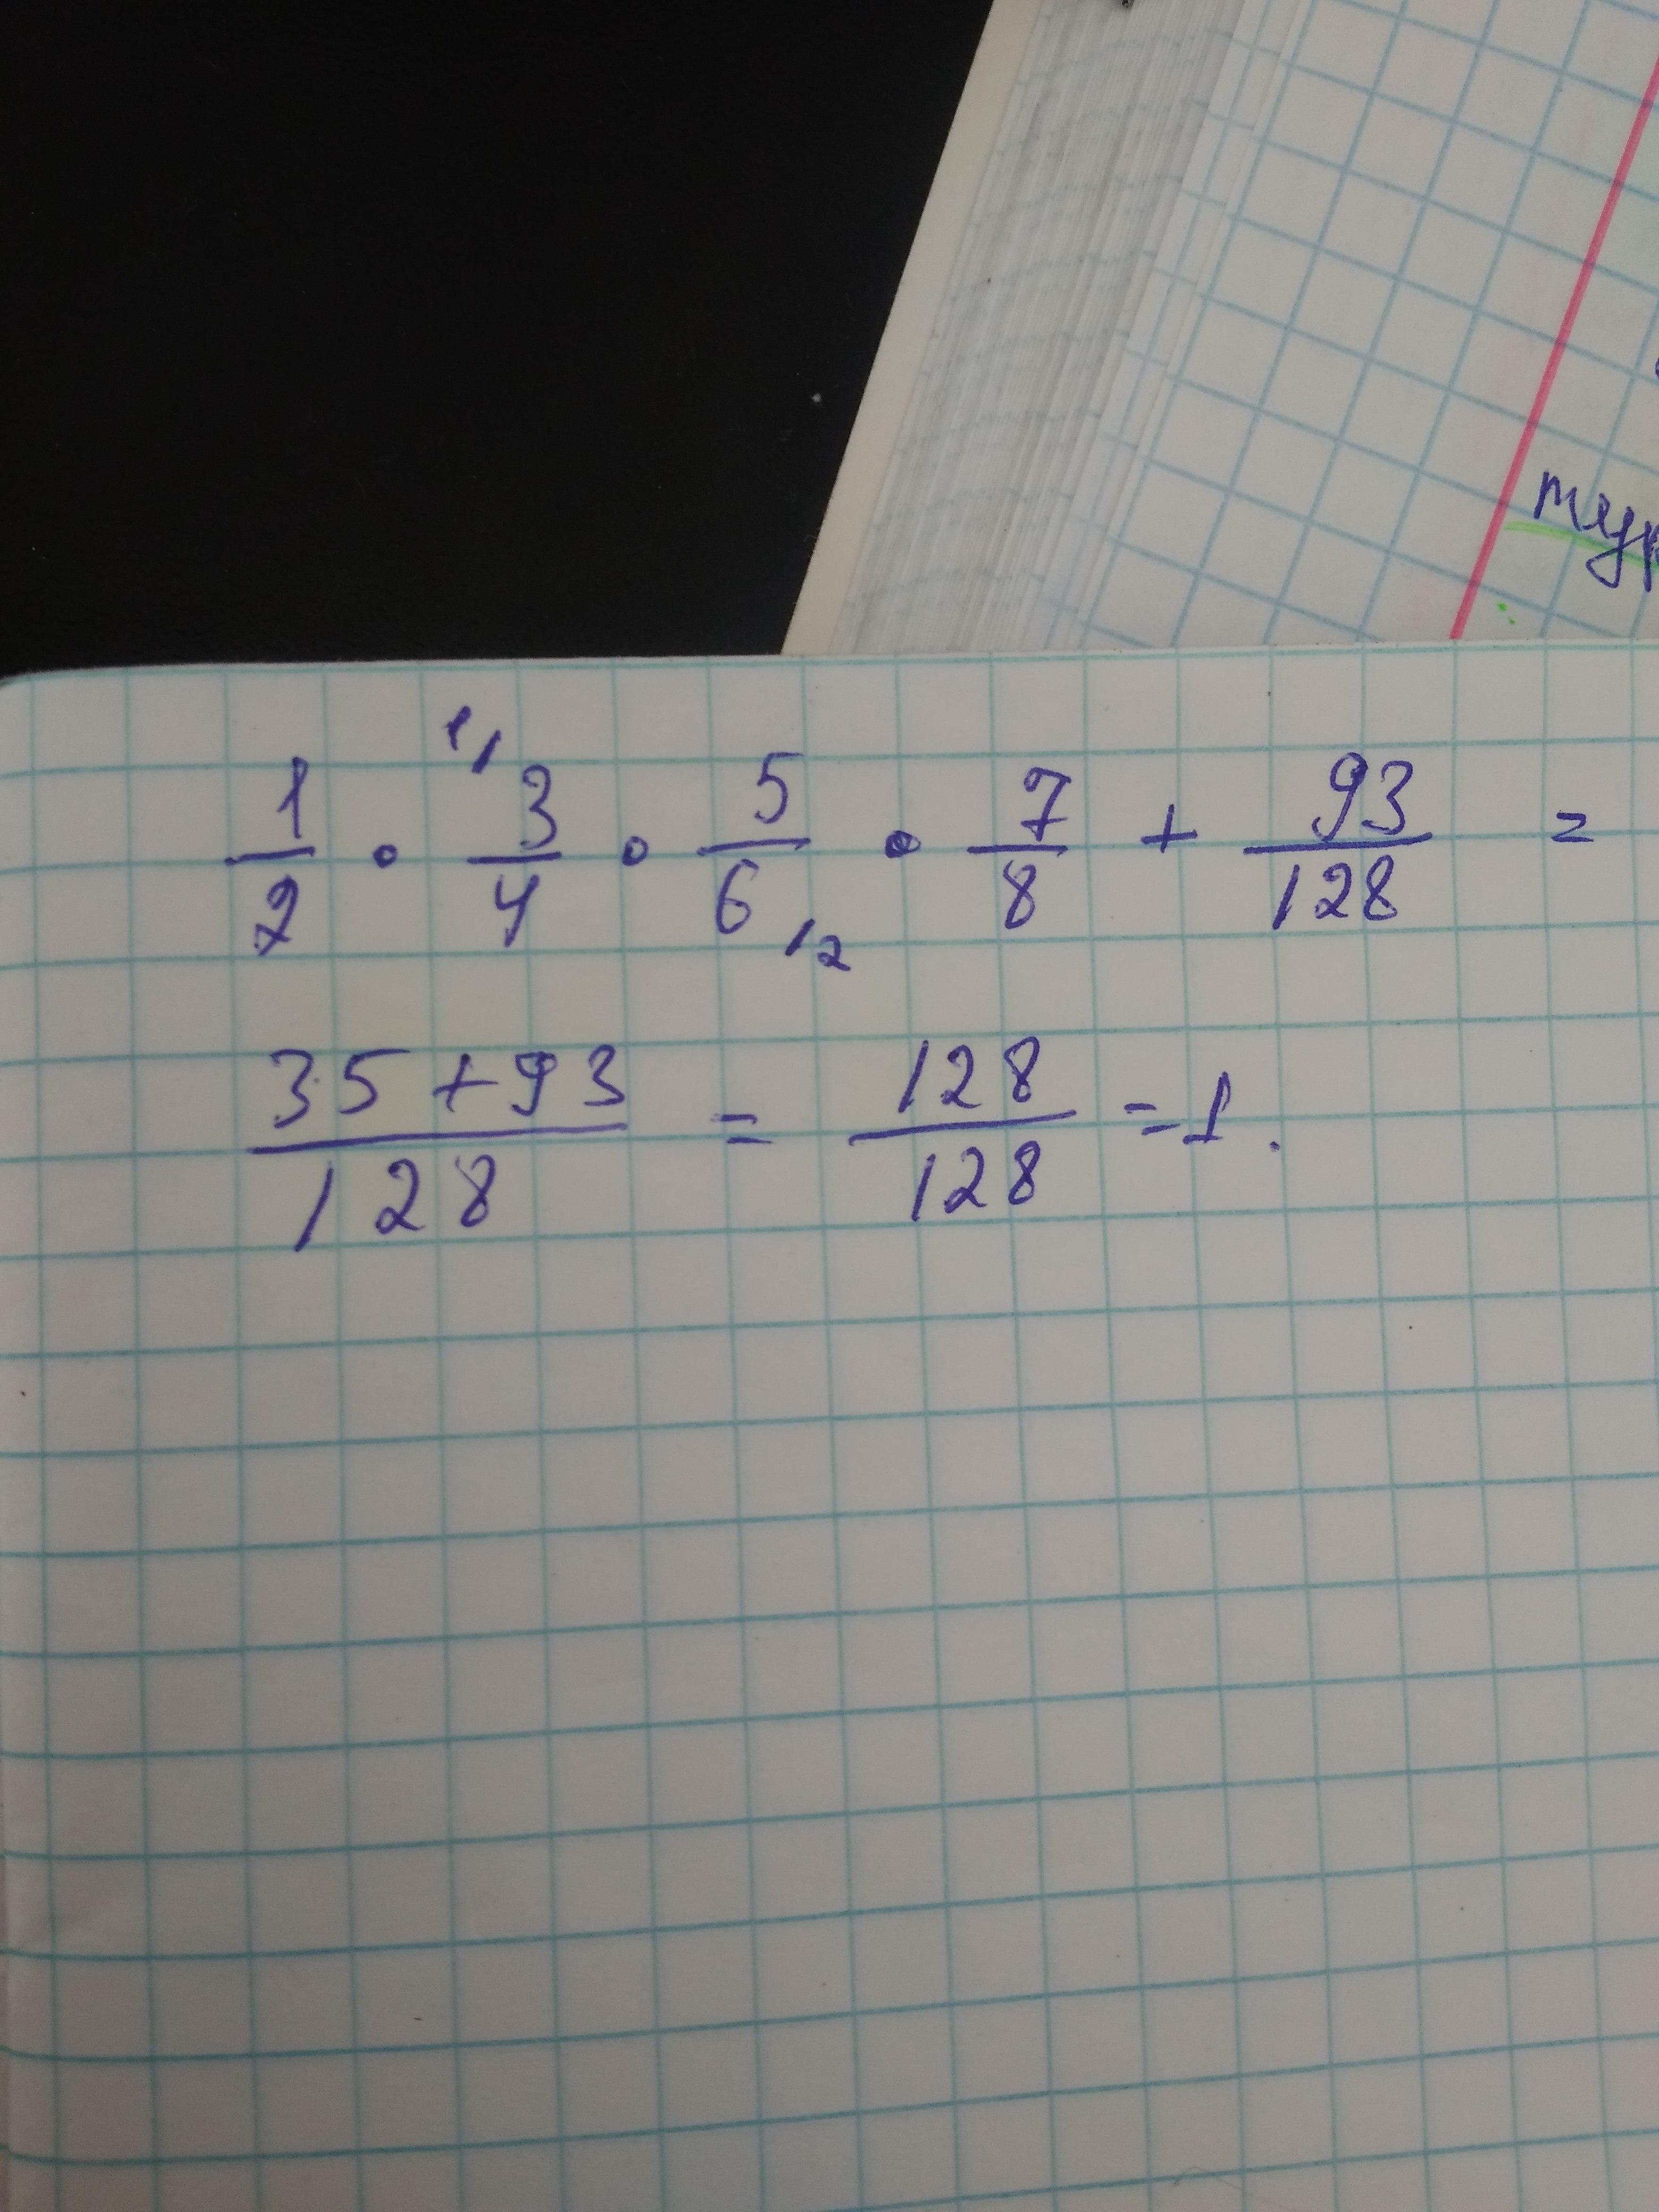 1/2 · 3/4 · 5/6 · 7/8 + 93/128 =
(35+93)/128 = 128/128 = 1.